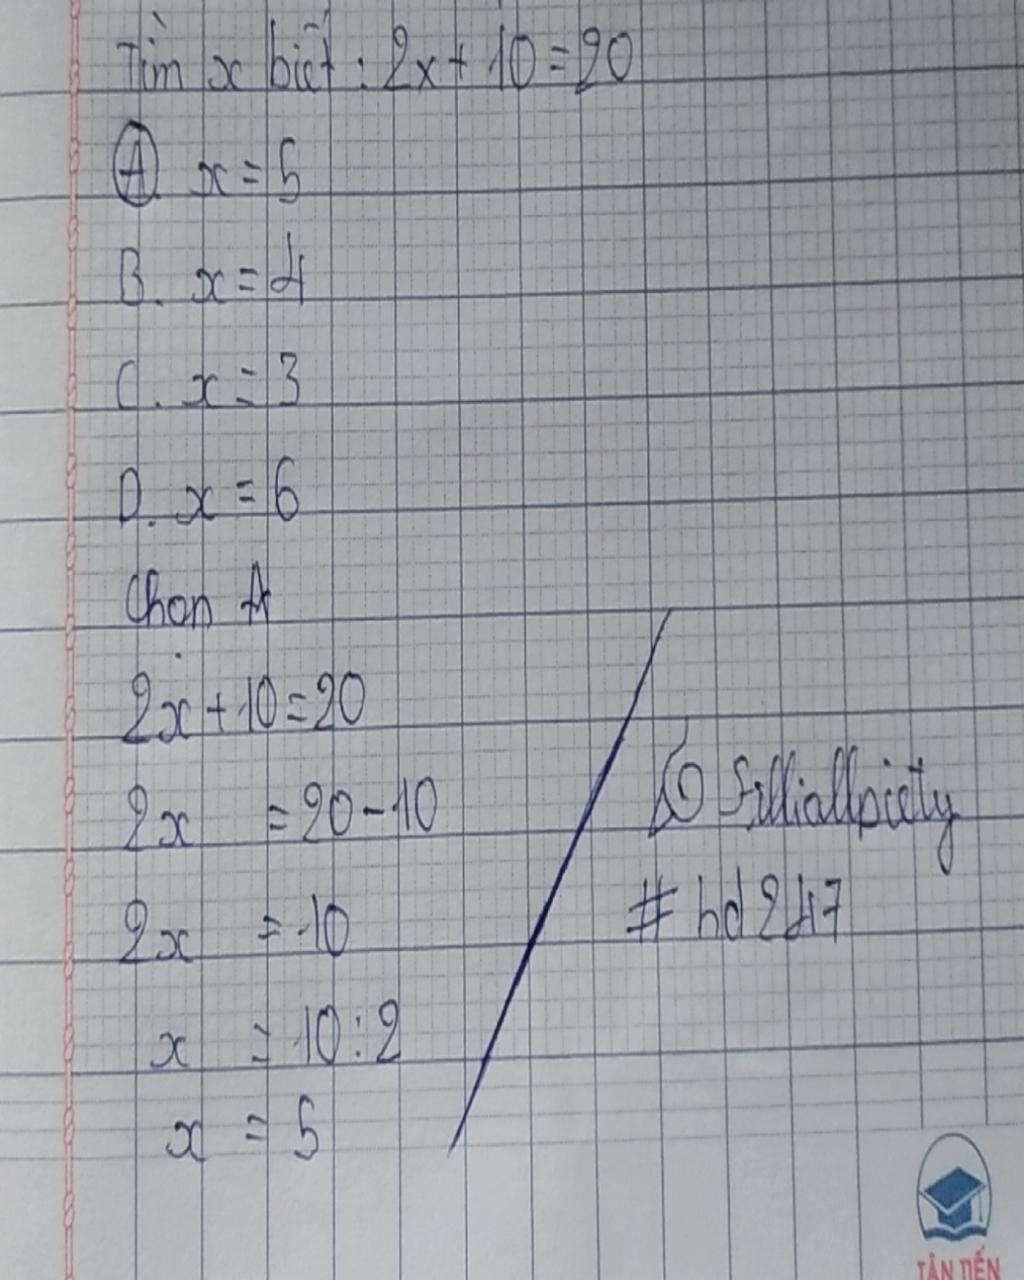 Tìm x biết : 2x + 10 = 20
A. x = 5
B. x = 4
C. x = 3
D. x = 6
Chọn A
2x + 10 = 20
2x = 20 - 10
2x = 10
x = 10 : 2
x = 5
@ Filliallpiety
# hd 247
TÂN TIẾN